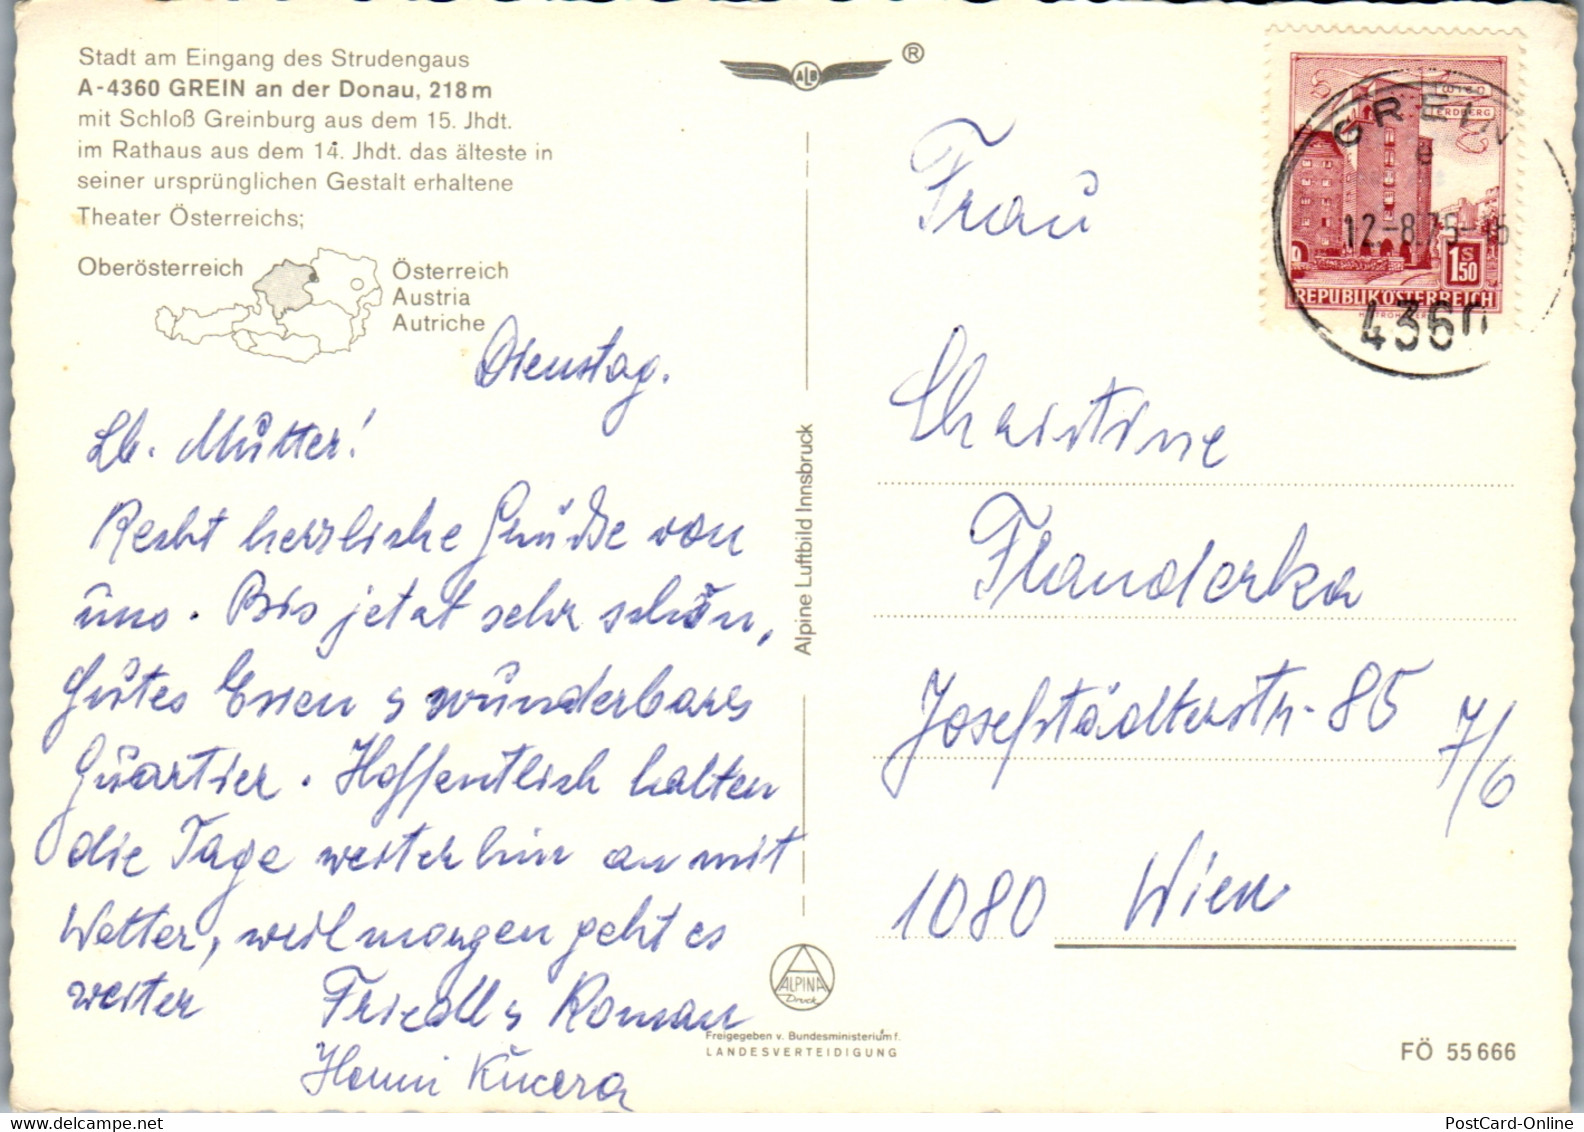 Stadt am Eingang des Strudengaus
A-4360 GREIN an der Donau, 218 m
mit Schloß Greinburg aus dem 15. Jhdt.
im Rathaus aus dem 14. Jhdt. das älteste in
seiner ursprünglichen Gestalt erhaltene
Theater Österreichs;
Oberösterreich
Österreich
Austria
Autriche
Dienstag.
Lb. Mutter!
Recht herzliche Grüße von
uns. Bis jetzt sehr schön,
gutes Essen & wunderbares
Quartier. Hoffentlich halten
die Tage weiterhin an mit
Wetter, weil morgen geht es
weiter
Friedl & Roman
Hanni Kucera
ALB
®
Alpine Luftbild Innsbruck
ALPINA
Druck
Freigegeben v. Bundesministerium f.
LANDESVERTEIDIGUNG
WIEN
ERDBERG
1 S 50
REPUBLIK ÖSTERREICH
GREIN
e
12.-8.75-
4360
Frau
Christine
Flanderka
Josefstädterstr. 85
7/6
1080 Wien
FÖ 55 666
PostCard-Online